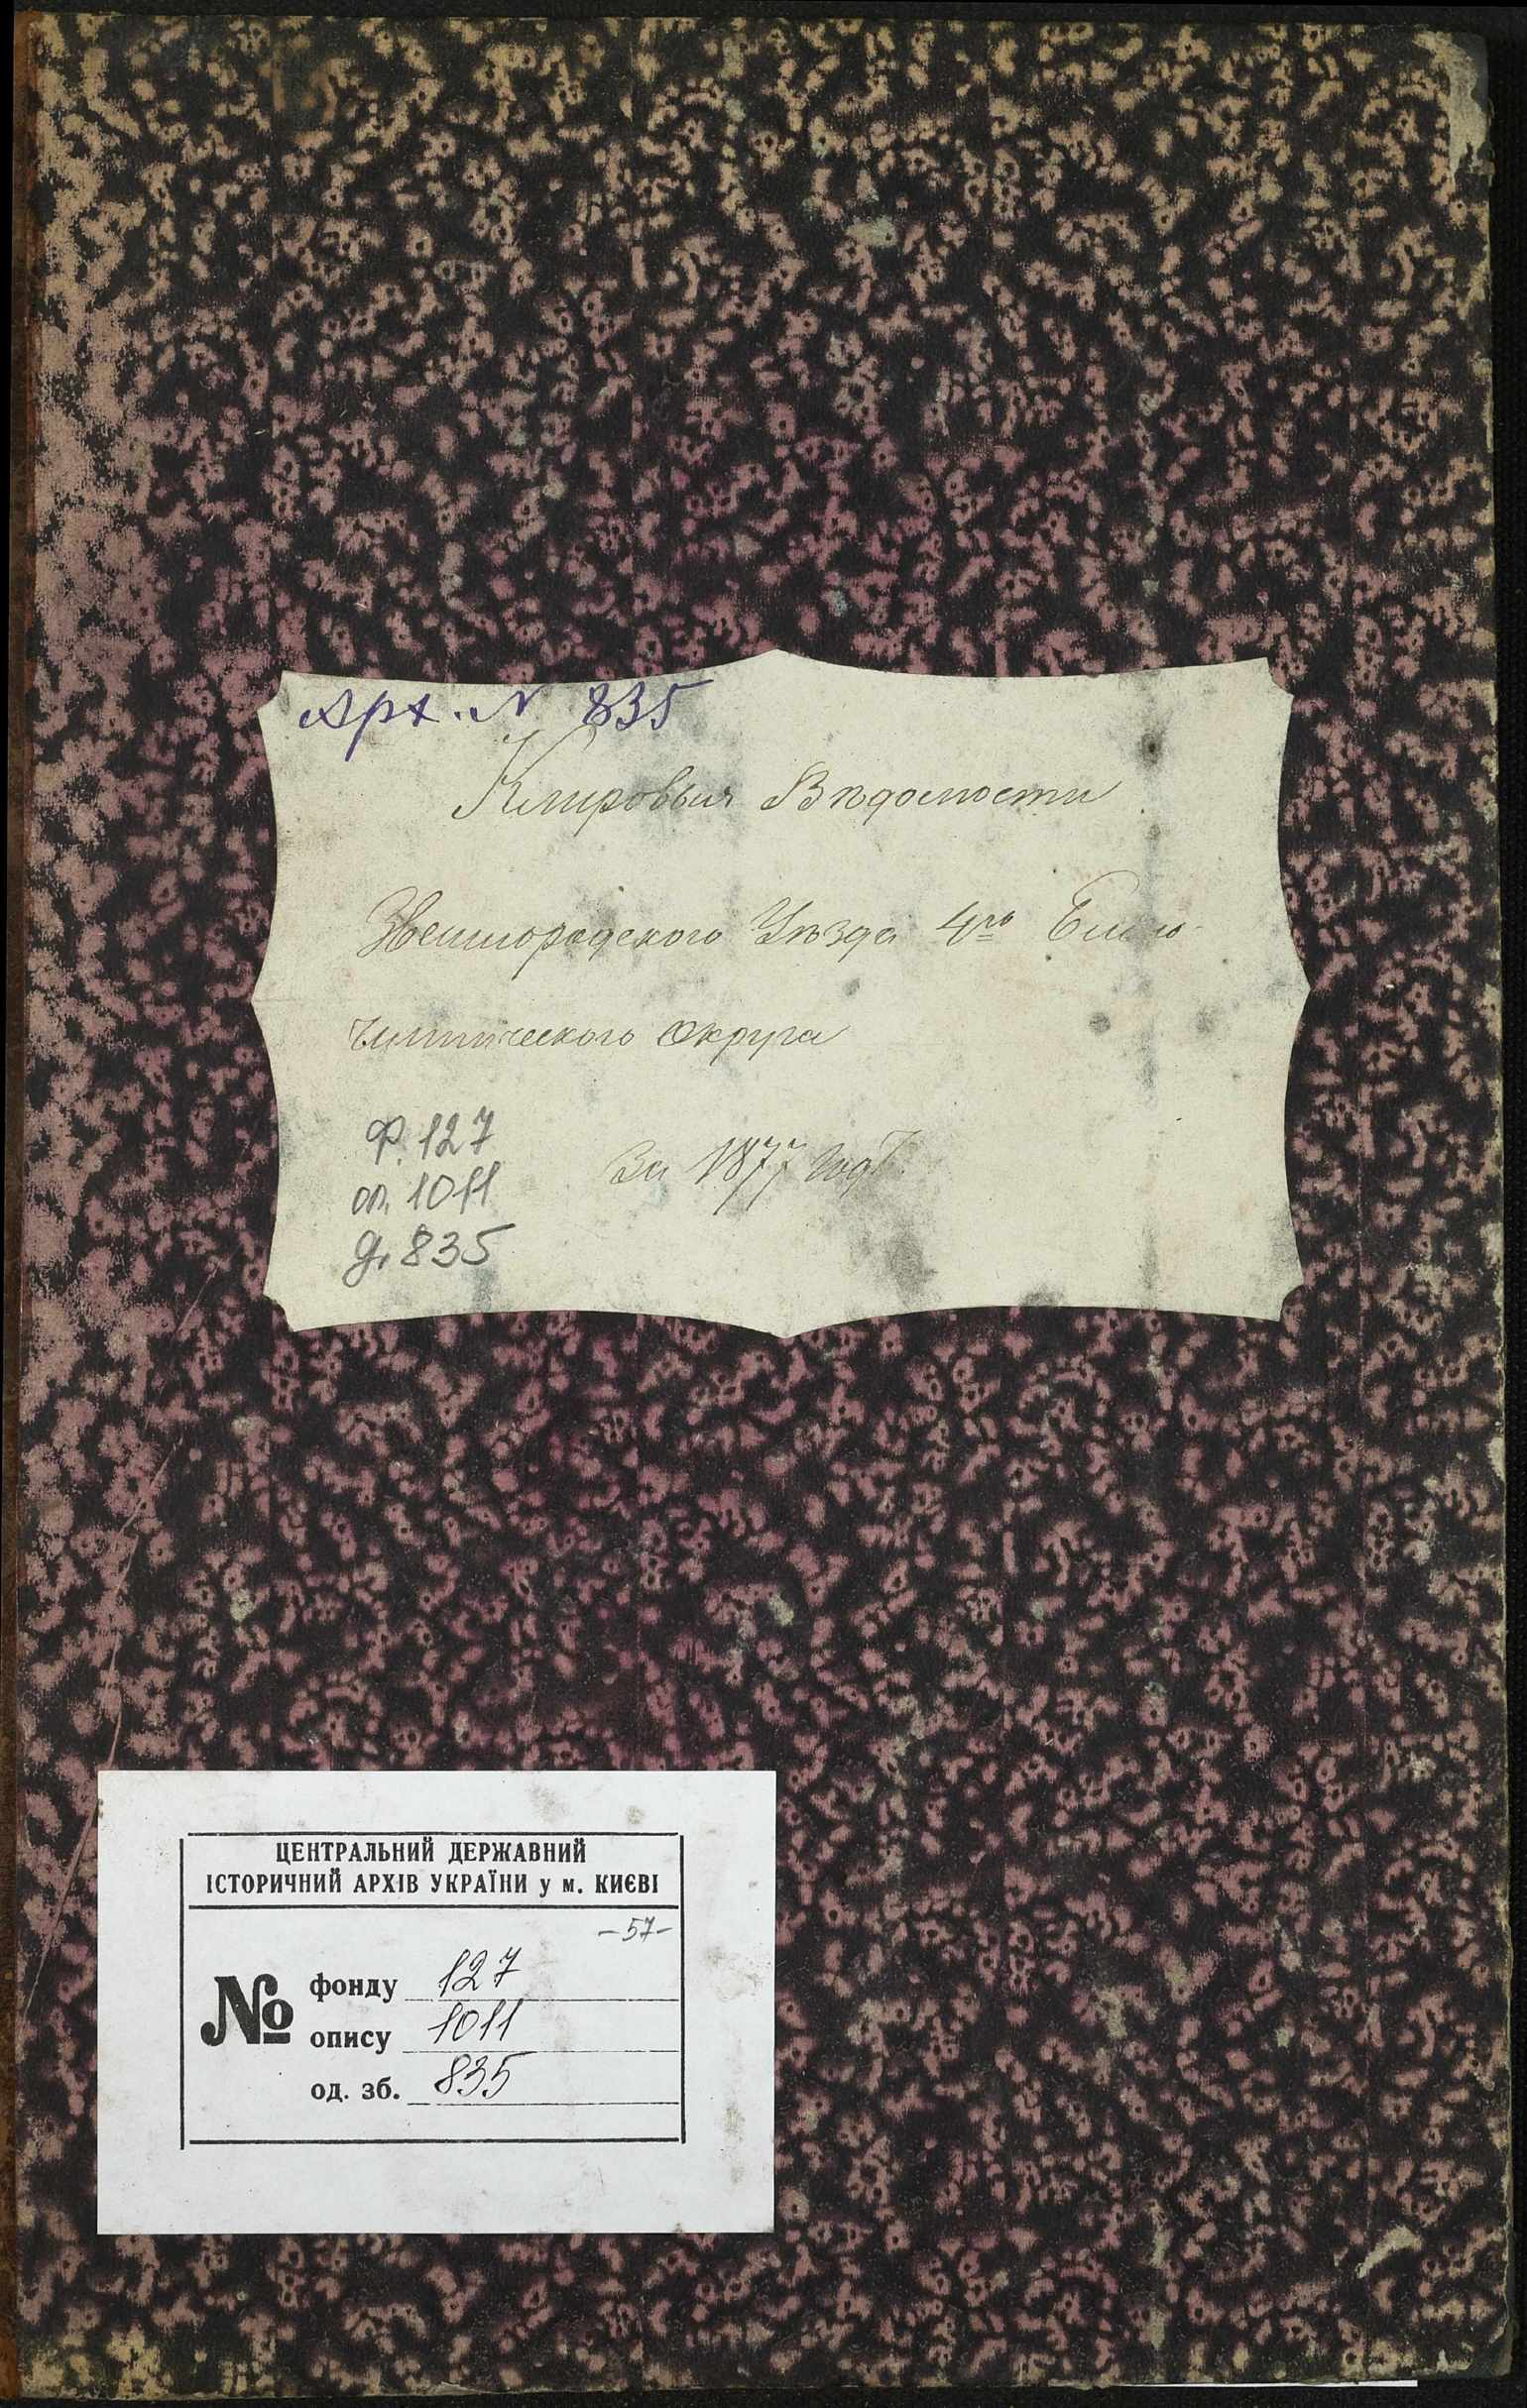 Арх. № 835
Клировыя Вѣдомости
Звенигородского Уѣзда 4го Благо-
чиннического Округа
Ф. 127
За 1877 годъ.
оп. 1011
д. 835
ЦЕНТРАЛЬНИЙ ДЕРЖАВНИЙ
ІСТОРИЧНИЙ АРХІВ УКРАЇНИ у м. КИЄВІ
-57-
№ фонду 127
опису 1011
од. зб. 835